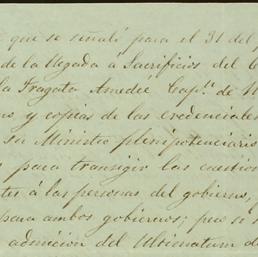 que se señaló para el 31 del p
de la llegada á Sacrificios del
la Fragata Amedée, Cap.n de
os y copias de las credenciale
su Ministro plenipotenciari
para transigir las cuestion
tes á las personas del gobierno,
para ambos gobiernos; pero si
admicion del Ultimatum d